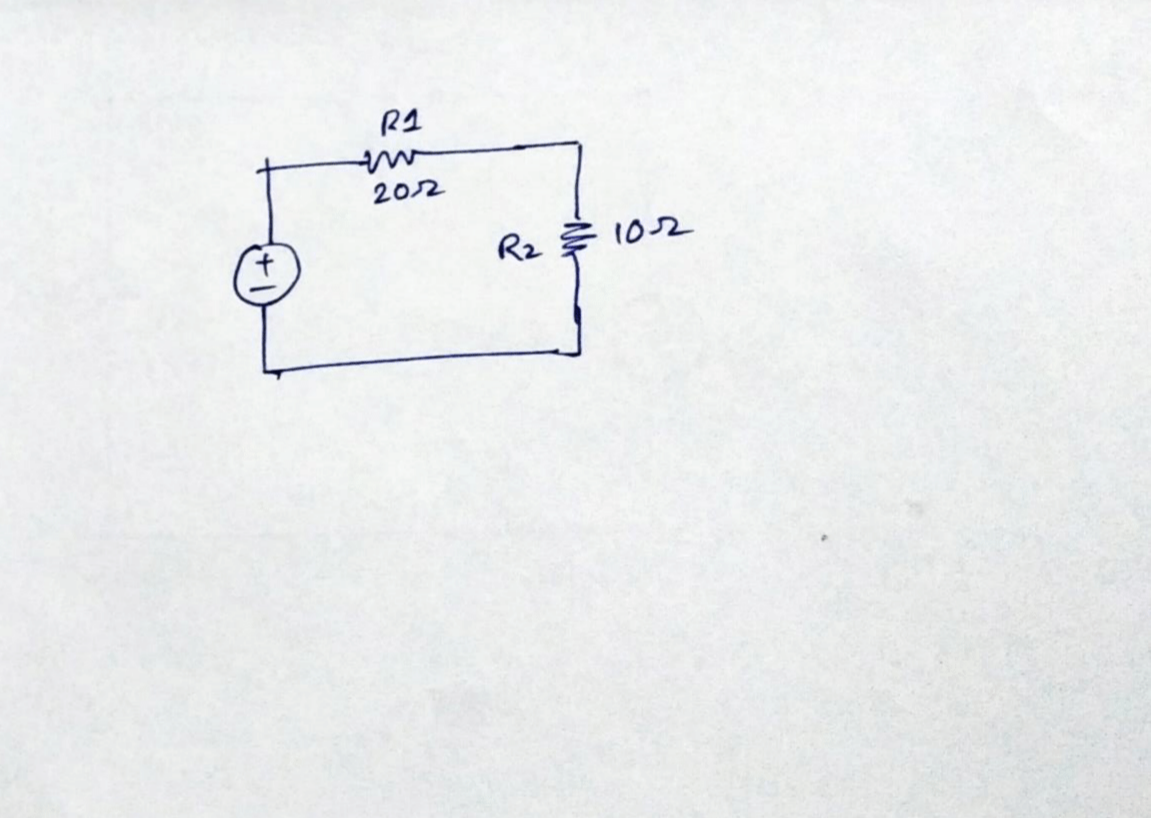 R1
20Ω
+
R2 10Ω
−